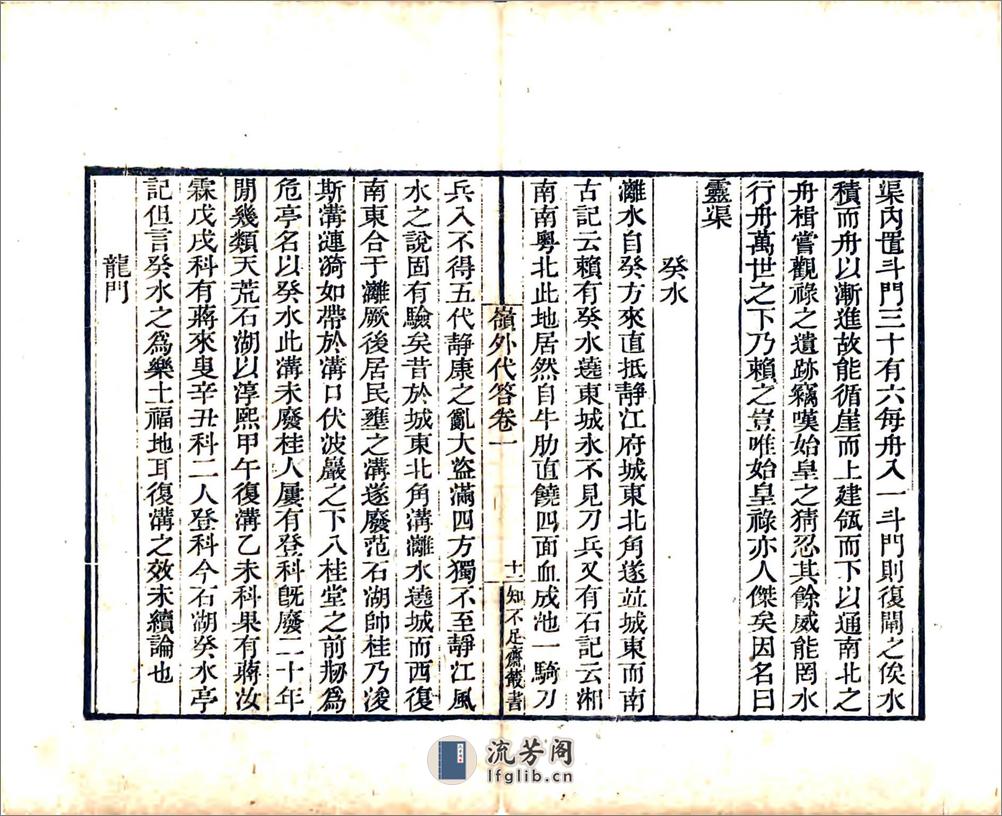 渠內置斗門三十有六每舟入一斗門則復閘之俟水
積而舟以漸進故能循崖而上建瓴而下以通南北之
舟楫嘗觀祿之遺跡竊嘆始皇之猜忍其餘威能罔水
行舟萬世之下乃賴之豈唯始皇祿亦人傑矣因名曰
靈渠
癸水
灕水自癸方來直抵靜江府城東北角遂竝城東而南
古記云賴有癸水遶東城永不見刀兵又有石記云湘
南南粤北此地居然自牛肋直饒四面血成池一騎刀
嶺外代答卷一
十二
知不足齋叢書
兵入不得五代靜康之亂大盜滿四方獨不至靜江風
水之說固有驗矣昔於城東北角溝灕水遶城而西復
南東合于灕厥後居民壅之溝遂廢范石湖帥桂乃浚
斯溝漣漪如帶於溝口伏波巖之下八桂堂之前剏為
危亭名以癸水此溝未廢桂人屢有登科旣廢二十年
閒幾類天荒石湖以淳熙甲午復溝乙未科果有蔣汝
霖戊戌科有蔣來叟辛丑科二人登科今石湖癸水亭
記但言癸水之爲樂土福地耳復溝之效未續論也
龍門
流芳阁
lfglib.cn